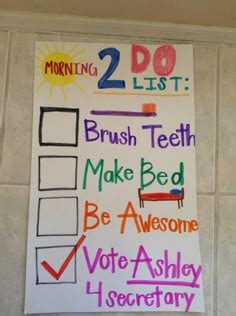 MORNING 2 DO
LIST:
Brush Teeth
Make Bed
Be Awesome
Vote Ashley
4 secretary